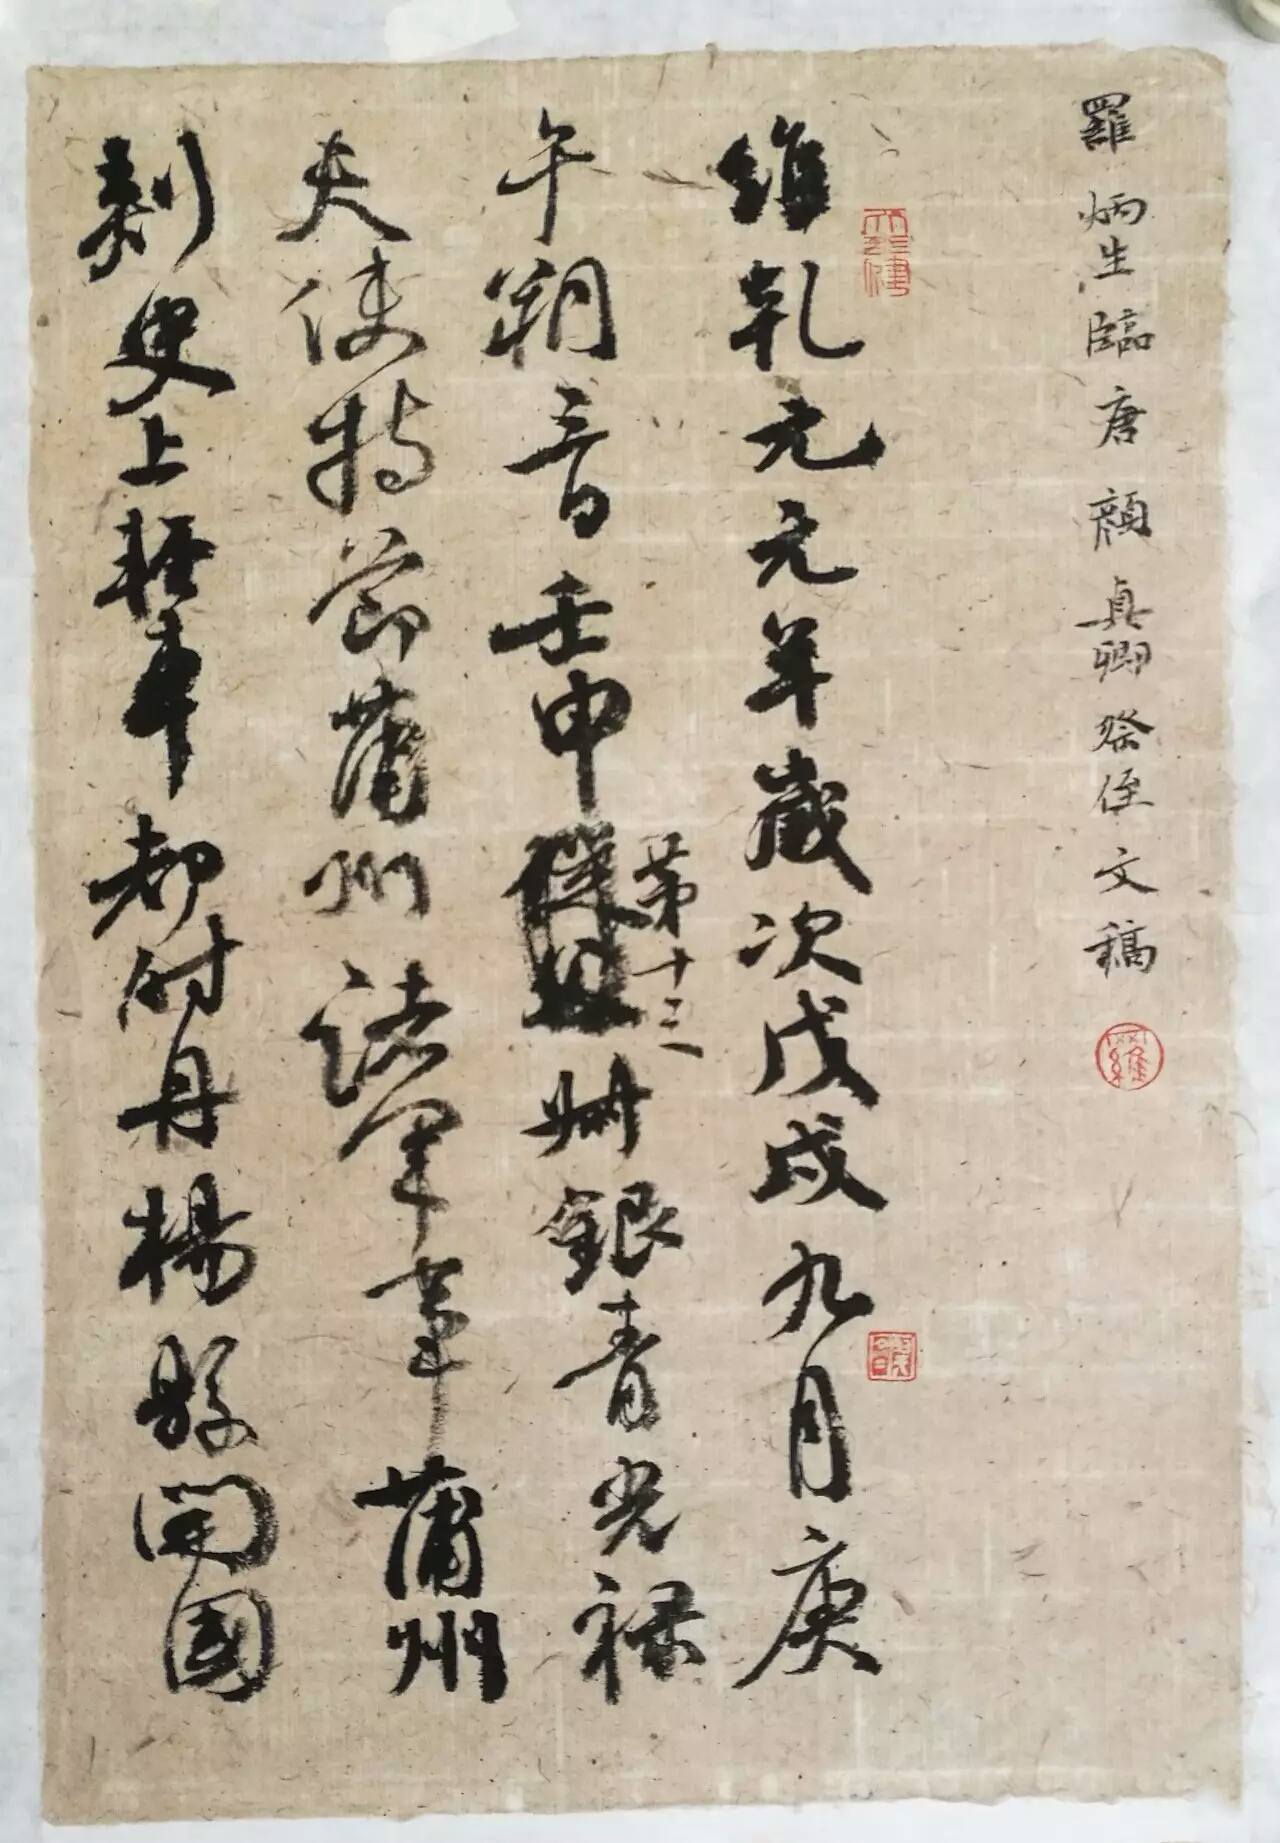 羅炳生臨唐顏真卿祭侄文稿
羅
維乾元元年歲次戊戌九月庚
午朔三日壬申第十三叔銀青光祿
夫使持節蒲州諸軍事蒲州
刺史上輕車都尉丹楊縣開國